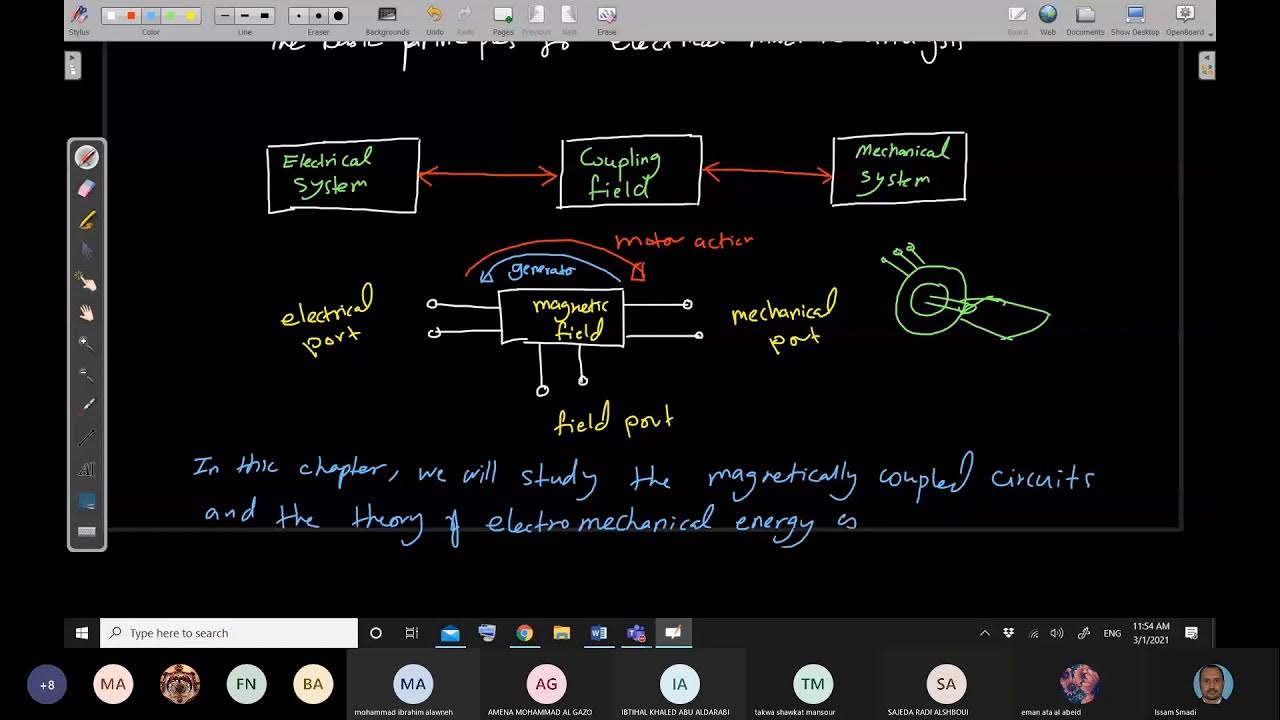 Stylus
Color
Line
Eraser
Backgrounds
Undo
Redo
Pages
Previous
Next
Erase
Board
Web
Documents
Show Desktop
OpenBoard
Electrical
System
Coupling
field
Mechanical
system
motor action
generator
electrical
port
magnetic
field
mechanical
port
field port
In this chapter, we will study the magnetically coupled circuits
and the theory of electromechanical energy
Type here to search
ENG
11:54 AM
3/1/2021
+8
MA
FN
BA
MA
AG
IA
TM
SA
mohammad ibrahim alawneh
AMENA MOHAMMAD AL GAZO
IBTIHAL KHALED ABU ALDARABI
takwa shawkat mansour
SAJEDA RADI ALSHBOUL
eman ata al abeid
Issam Smadi